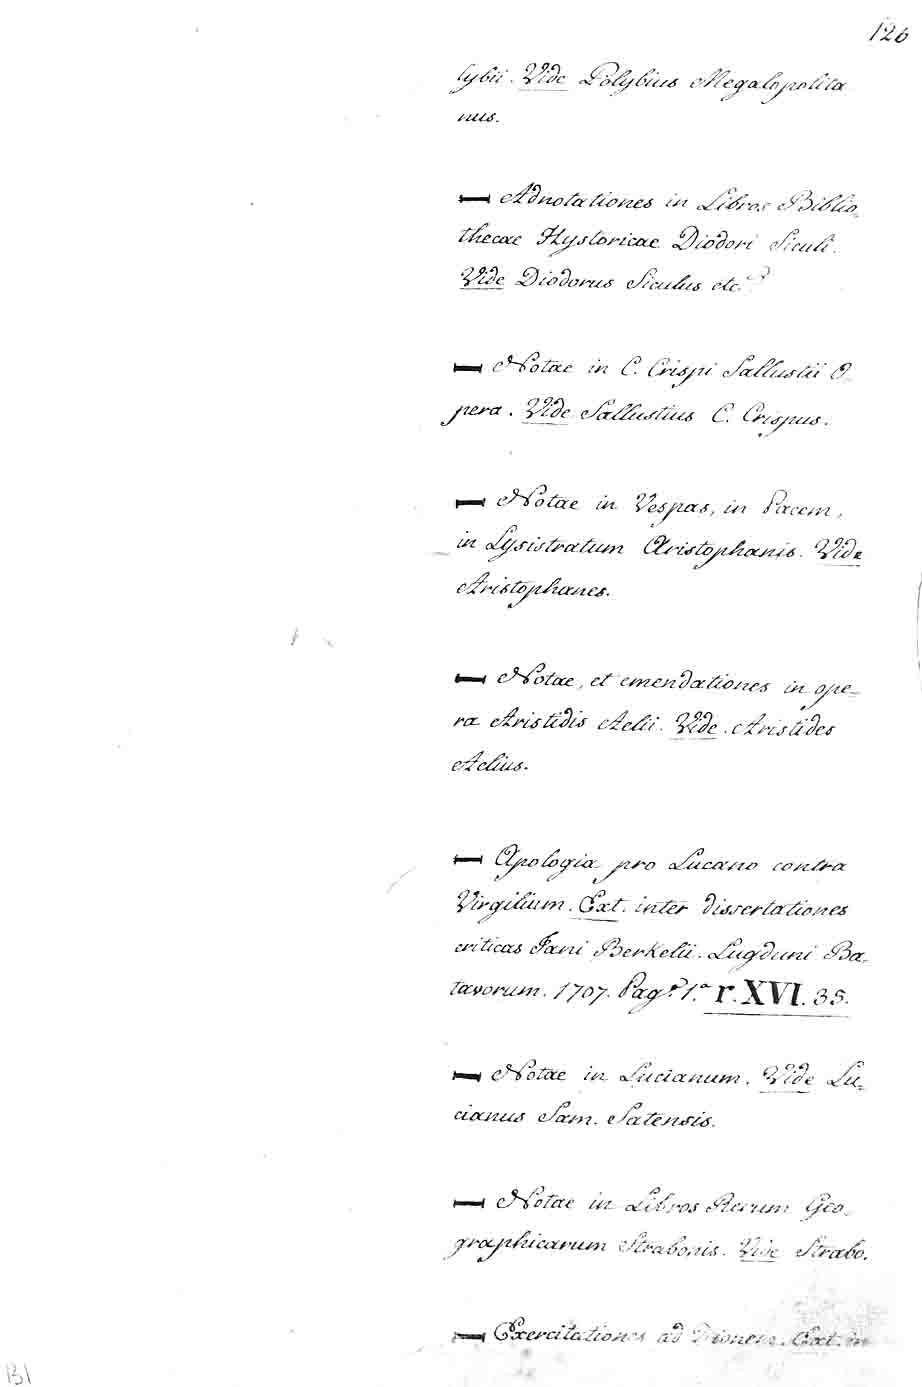 126
lybii. Vide Polybius Megalopolita
nus.
— Adnotationes in Libros Biblio-
thecae Hystoricae Diodori Siculi.
Vide Diodorus Siculus etc.
— Notae in C. Crispi Sallustii O-
pera. Vide Sallustius C. Crispus.
— Notae in Vespas, in Pacem,
in Lysistratum Aristophanis. Vide
Aristophanes.
— Notae, et emendationes in ope-
ra Aristidis Aelii. Vide. Aristides
Aelius.
— Apologia pro Lucano contra
Virgilium. Ext. inter dissertationes
criticas Jani Berkelii. Lugduni Ba-
tavorum. 1707. Pag.ª 1.ª r. XVI. 35.
— Notae in Lucianum. Vide Lu-
cianus Sam. Satensis.
— Notae in Libros Rerum Geo-
graphicarum Strabonis. Vide Strabo.
— Exercitationes ad Dionem. Ext. in
131